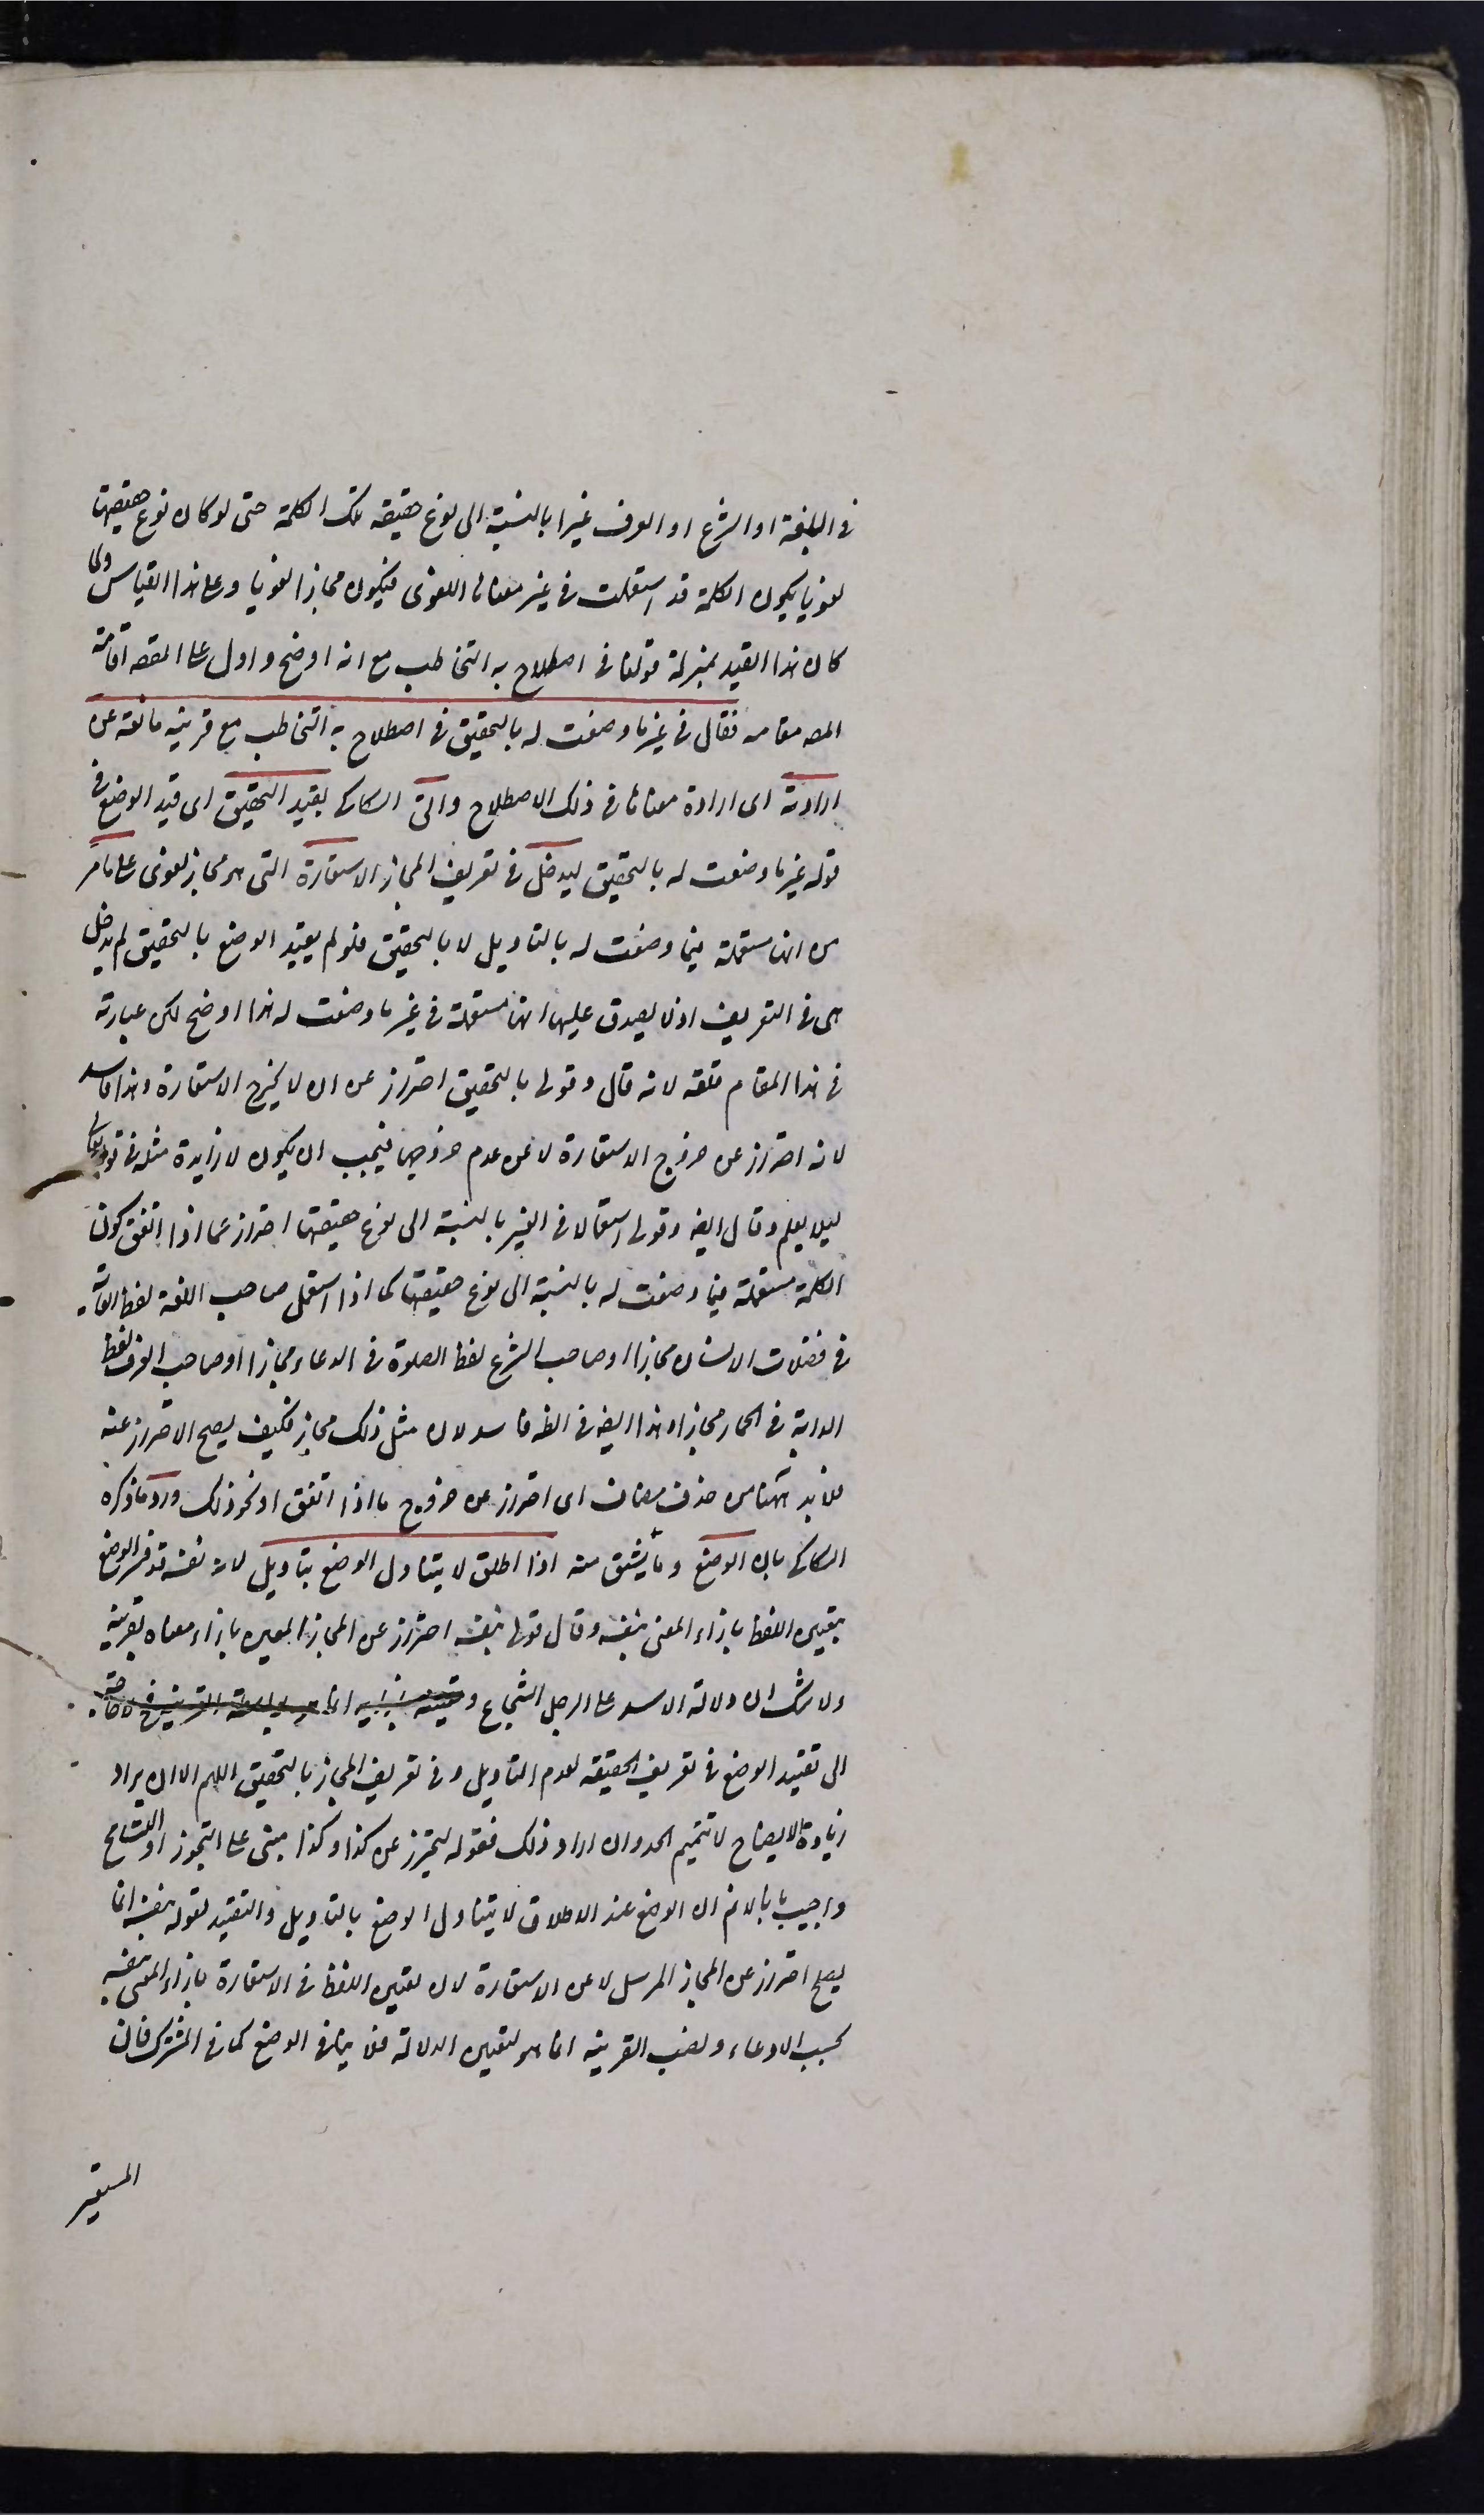 فى اللغة او الشرع او العرف غيرا بالنسبة الى نوع حقيقة تلك الكلمة حتى لو كان نوع حقيقتها
لغويا يكون الكلمة قد استعملت فى غير معناها اللغوى فيكون مجازا لغويا وعلى هذا القياس ولما
كان هذا القيد بمنزلة قولنا فى اصطلاح به التخاطب مع انه اوضح وادل على المقصد اقامه
المص مقامه فقال فى غير ما وضعت له بالتحقيق فى اصطلاح به التخاطب مع قرينه مانعة عن
ارادته اى ارادة معناها فى ذلك الاصطلاح واتى السكاكى بقيد التحقيق اى قيد الوضع فى
قوله غير ما وضعت له بالتحقيق ليدخل فى تعريف المجاز الاستعارة التى هو مجاز لغوى على ما مر
من انها مستعملة فيما وضعت له بالتاويل لا بالتحقيق فلو لم يقيد الوضع بالتحقيق لم يدخل
هى فى التعريف اذ لا يصدق عليها انها مستعملة فى غير ما وضعت له هذا اوضح لكن عبارته
فى هذا المقام قلقه لانه قال وقولى بالتحقيق احتراز عن ان لا يخرج الاستعارة وهذا فاسد
لانه احتراز عن خروج الاستعارة لا عن عدم خروجها فيجب ان يكون لا زايدة مثله فى قوله تعالى
ليلا يعلم وقال ايضه وقولى استعمالا فى الغير بالنسبة الى نوع حقيقتها احتراز عما اذا اتفق كونها
الكلمة مستعملة فيما وضعت له بالنسبة الى نوع حقيقتها كما اذا استعمل صاحب اللغة لفظ الغايط
فى فضلات الانسان مجازا او صاحب الشرع لفظ الصلوة فى الدعاء مجازا او صاحب العرف لفظ
الدابة فى الحمار مجازا وهذا ايضه فى الظه فاسد لان مثل ذلك مجاز فكيف يصح الاحتراز عنه
فلا بد ههنا من حذف مضاف اى احتراز عن خروج ما اذا اتفق او نحو ذلك ورد ما ذكره
السكاكى بان الوضع وما يشتق منه اذا اطلق لا يتناول الوضع بتاويل لانه نفسه قد فسر الوضع
بتعيين اللفظ بازاء المعنى بنفسه وقال قولى بنفسه احتراز عن المجاز المعين بازاء معناه بقرينه
ولا شك ان دلالة الاسد على الرجل الشجاع وتعيينه بازائه انما هو بواسطة القرينه فح لا حاجة
الى تقييد الوضع فى تعريف الحقيقة لعدم التاويل وفى تعريف المجاز بالتحقيق اللهم الا ان يراد
زيادة الايضاح لا تتميم الحد وان اراد ذلك فقوله ليحترز عن كذا وكذا مبنى على التجوز او التسامح
واجيب بانا لانم ان الوضع عند الاطلاق لا يتناول الوضع بالتاويل والتقييد لقوله بنفسه انما
يصلح احتراز عن المجاز المرسل لا عن الاستعارة لان تعيين اللفظ فى الاستعارة بازاء المعنى بنفسه
بحسب الادعاء ونصب القرينه انما هو لتعيين الدلالة فلا ينافى الوضع كما فى المشترك فان
المستعير